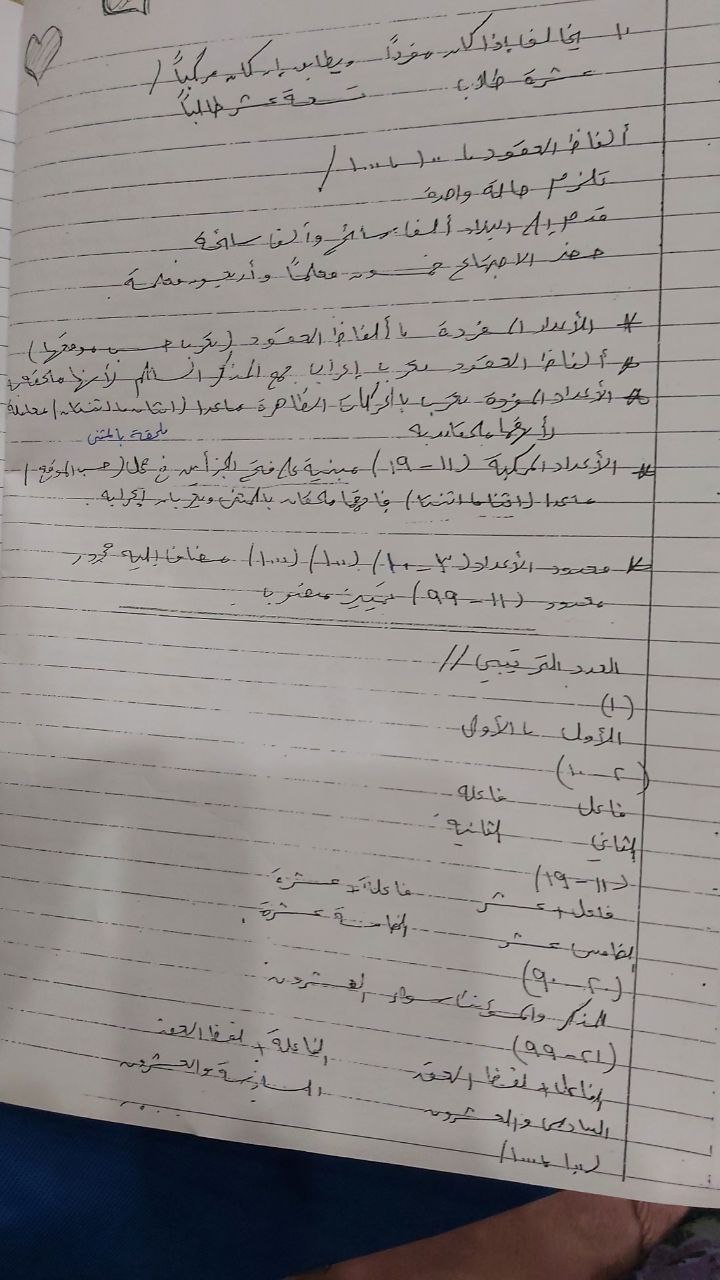 ١٠ يخالف إذا كان مفرداً ويطابق إن كان مركباً /
عشرة طلاب تسعة عشر طالباً
ألفاظ العقود، ١٠٠، ١٠٠٠ /
تلزم حالة واحدة
قدم إلى البلاد ألفا سائح وألفا سائحة
حضر الاجتماع خمسون معلماً وأربعون معلمة
* الأعداد المفردة، ألفاظ العقود (تعرب حسب موقعها)
* ألفاظ العقود تعرب إعراب جمع المذكر السالم لأنها ملحقة
* الأعداد المفردة تعرب بالحركات الظاهرة ماعدا (اثنان، اثنتان)
لأنهما ملحقان به
ملحقة بالمثنى
* الأعداد المركبة (١١-١٩) مبنية على فتح الجزأين في محل (حسب الموقع)
ماعدا (اثنا، اثنتا) فإنهما ملحقان بالمثنى ويعربان إعرابه.
* معدود الأعداد (٣-١٠) (١٠٠) (١٠٠٠) مضاف إليه مجرور
معدود (١١-٩٩) تمييز منصوب
العدد الترتيبي //
(١)
الأول، الأولى
(٢-١٠)
فاعل فاعلة
الثاني الثانية
(١١-١٩)
فاعل+عشر فاعلة+عشرة
الخامس عشر الخامسة عشرة.
(٢٠-٩٠)
المذكر والمؤنث سواء العشرون.
(٢١-٩٩)
الفاعل+لفظ العقد الفاعلة+لفظ العقد
السادس والعشرون السادسة والعشرون